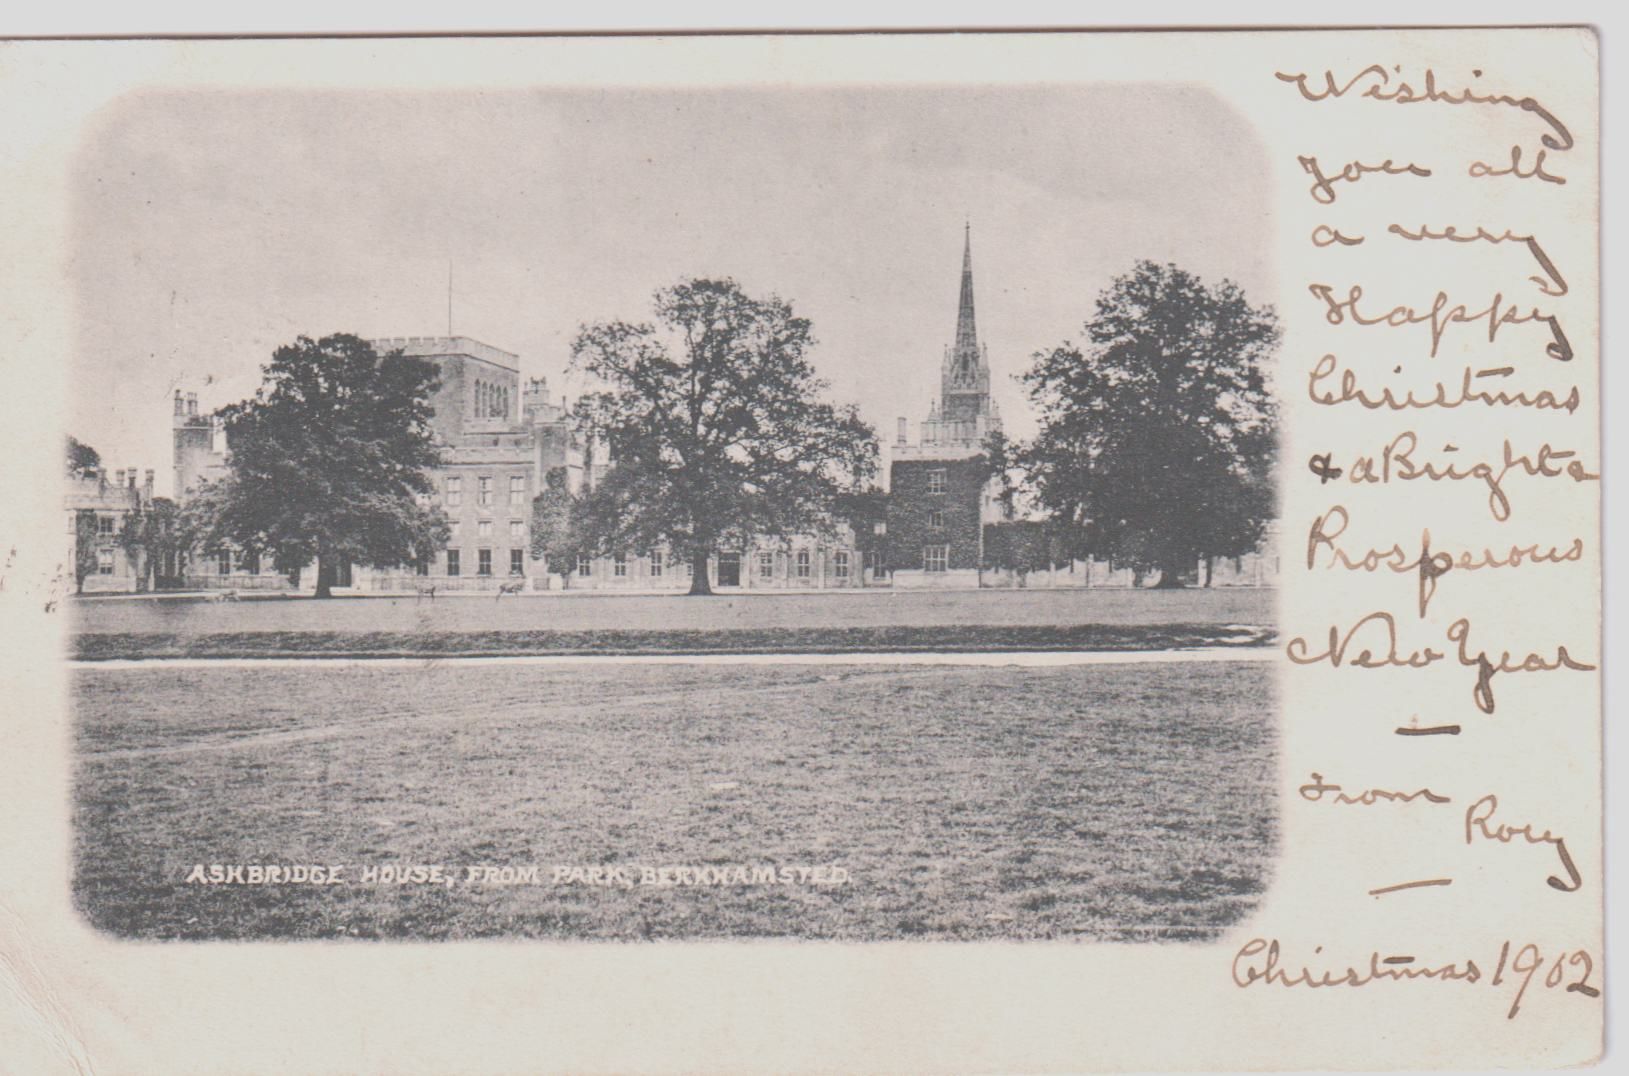 Wishing
you all
a very
Happy
Christmas
& a Bright &
Prosperous
New Year
—
From
Rory
—
Christmas 1902
ASHBRIDGE HOUSE, FROM PARK, BERKHAMSTED.